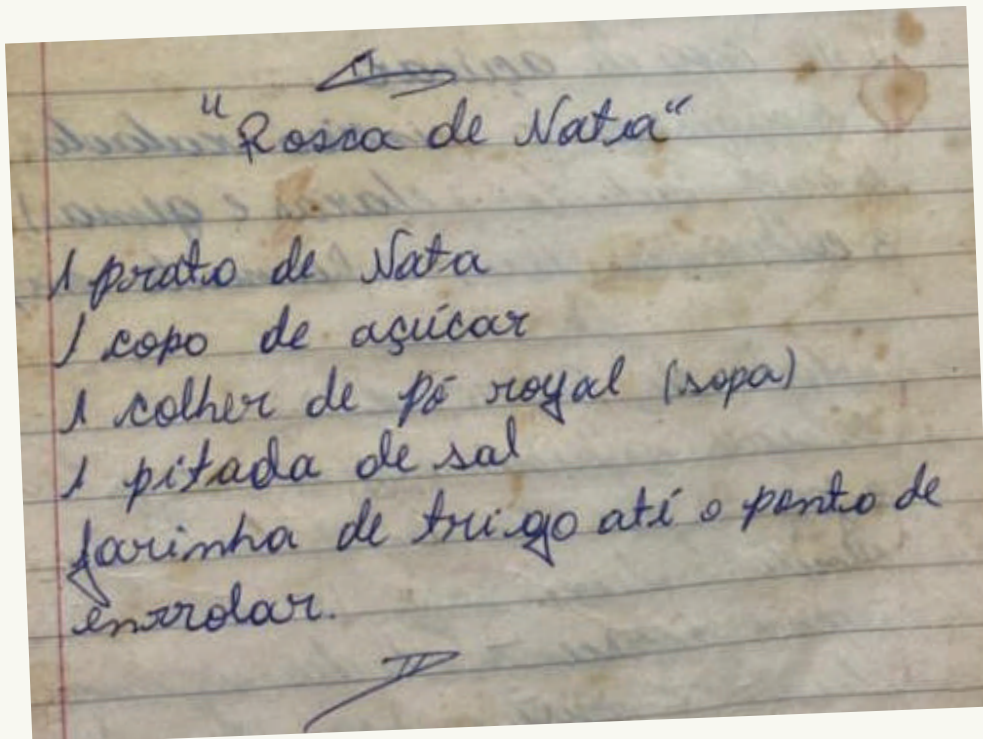 "Rosca de Nata"
1 prato de Nata
1 copo de açúcar
1 colher de pó royal (sopa)
1 pitada de sal
farinha de trigo até o ponto de
enrrolar.